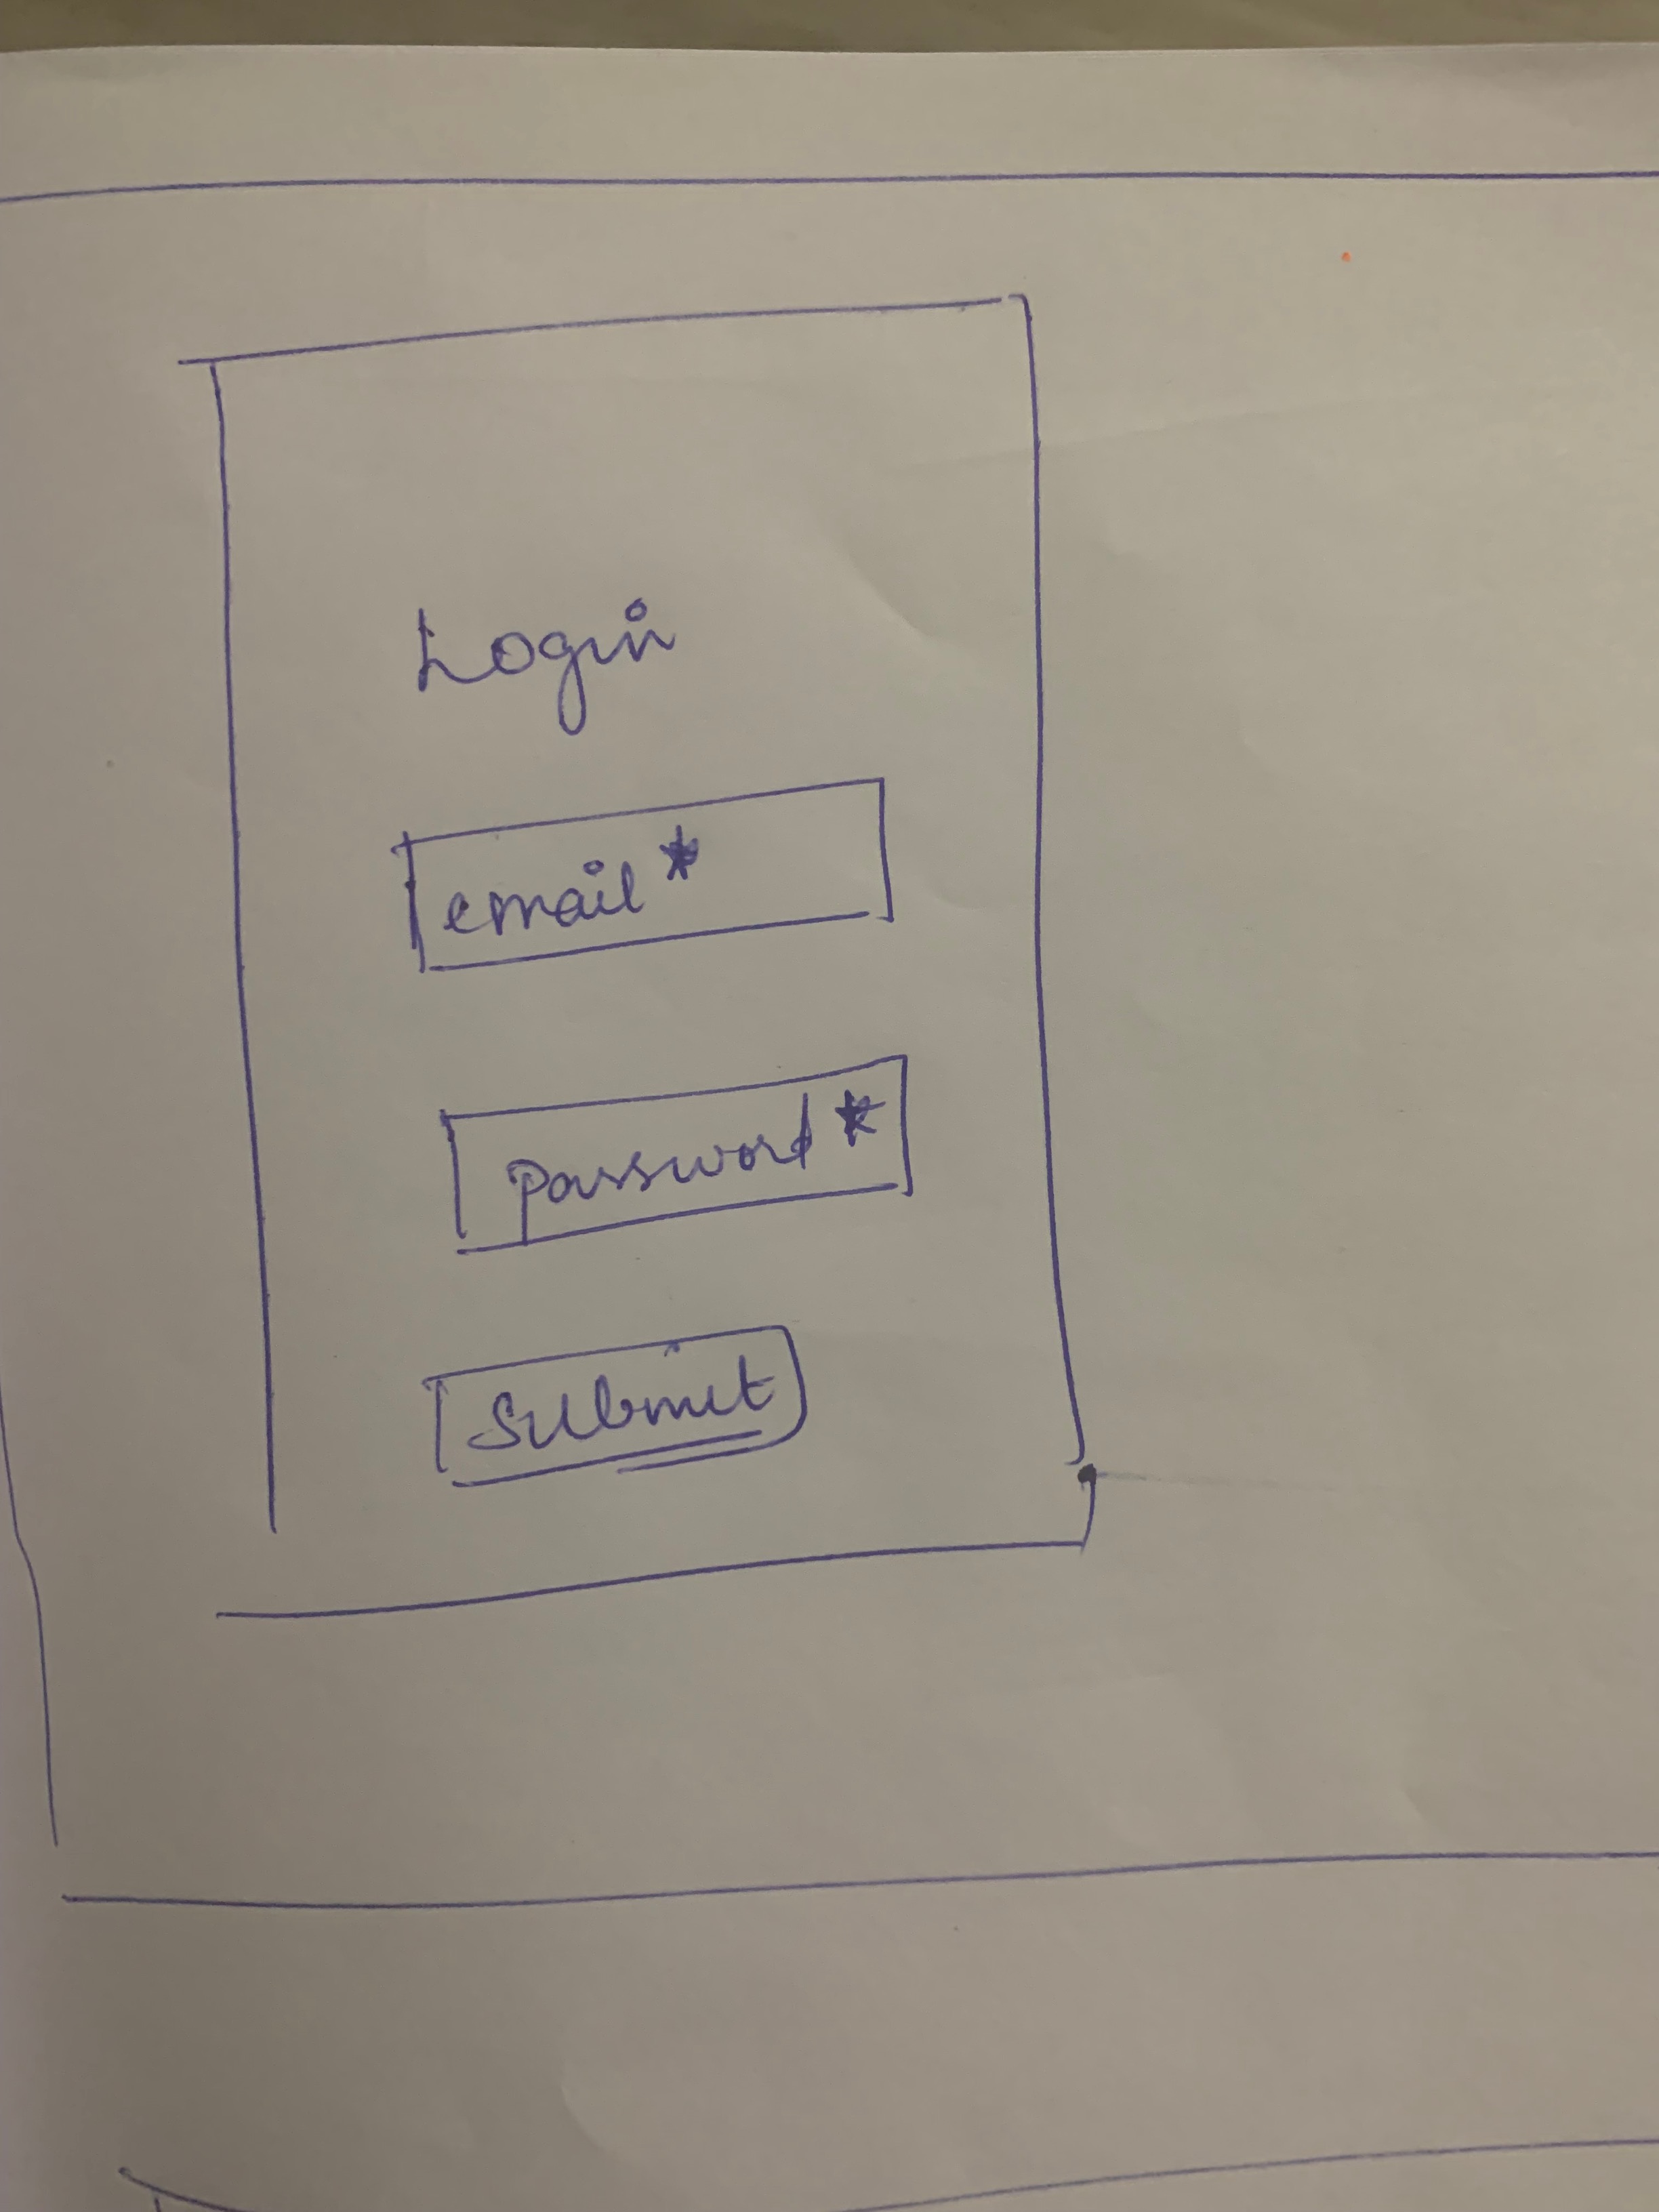 Login
email *
password *
Submit